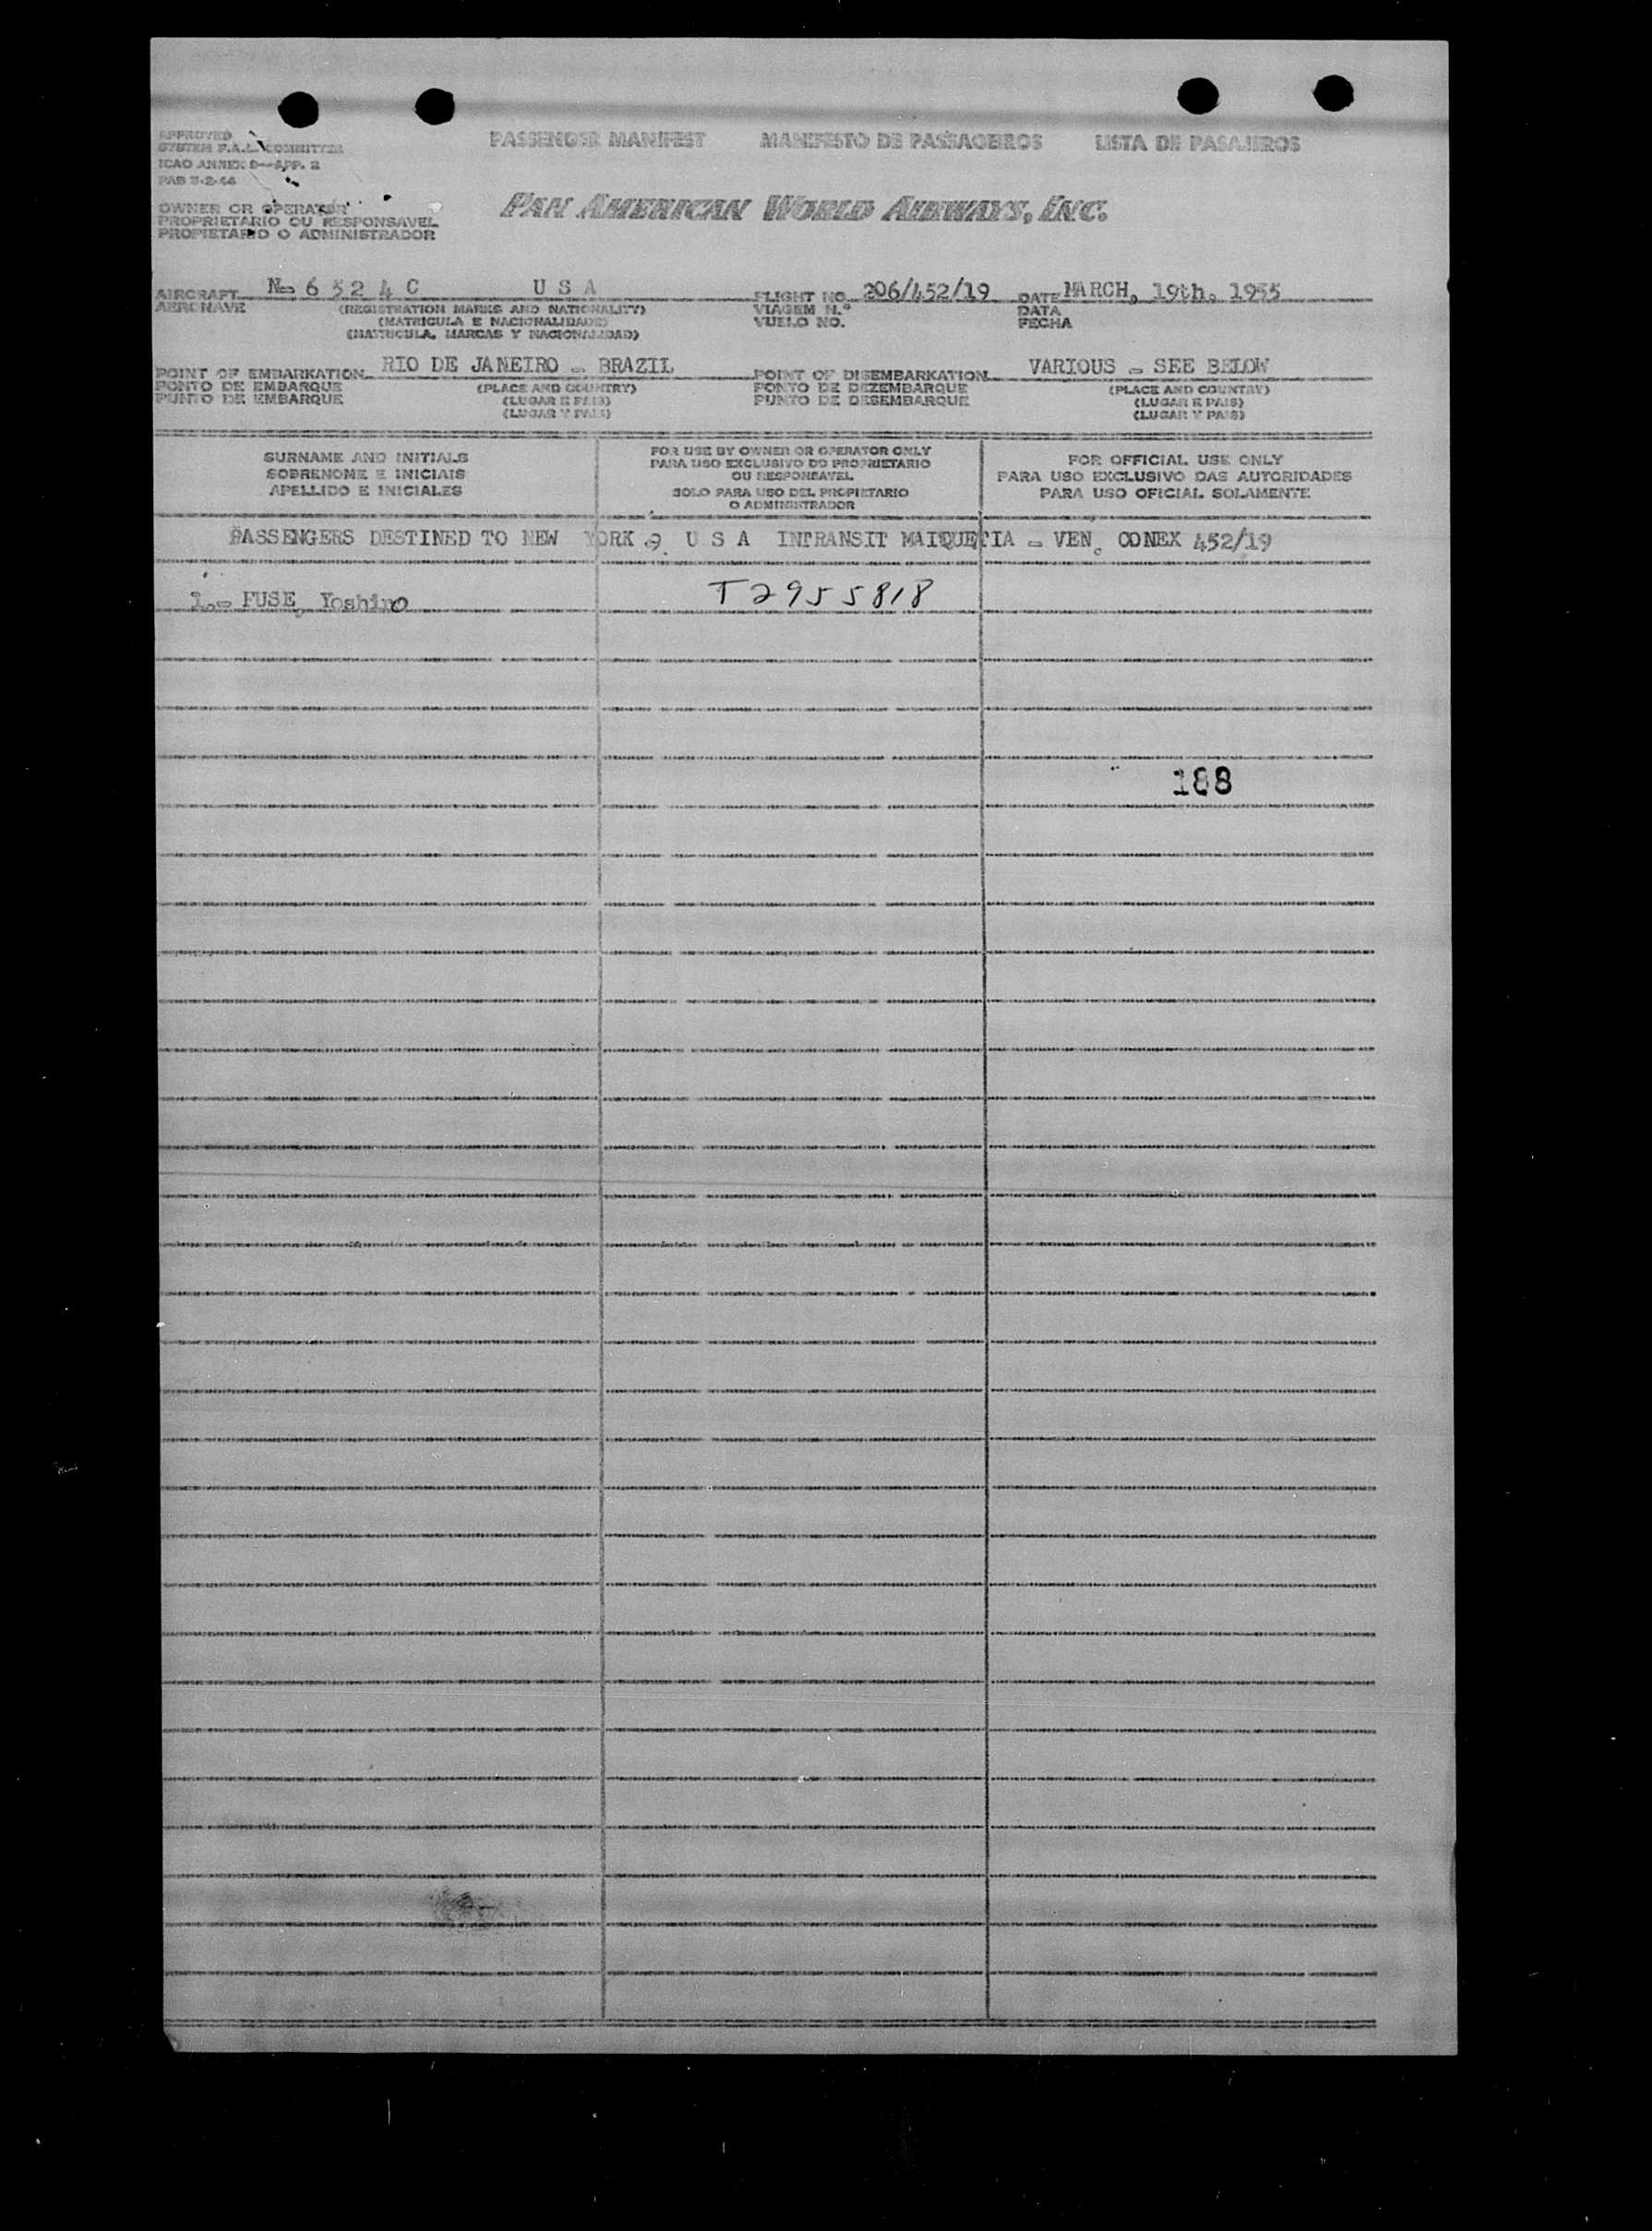 PASSENGER MANIFEST MANIFESTO DE PASSAGEIROS LISTA DE PASAJEROS
APPROVED
SYSTEM F.A.L. COMMITTEE
ICAO ANNEX 9—APP. 2
OWNER OR OPERATOR
PROPRIETARIO OU RESPONSAVEL
PROPIETARIO O ADMINISTRADOR
PAN AMERICAN WORLD AIRWAYS, INC.
AIRCRAFT N- 6 5 2 4 C U S A FLIGHT NO. 206/452/19 DATE MARCH, 19th. 1955
AERONAVE (REGISTRATION MARKS AND NATIONALITY) VIAGEM N.º DATA
(MATRICULA E NACIONALIDADE) VUELO NO. FECHA
(MATRICULA, MARCAS Y NACIONALIDAD)
POINT OF EMBARKATION RIO DE JANEIRO - BRAZIL POINT OF DISEMBARKATION VARIOUS - SEE BELOW
PONTO DE EMBARQUE (PLACE AND COUNTRY) PONTO DE DEZEMBARQUE (PLACE AND COUNTRY)
PUNTO DE EMBARQUE (LUGAR E PAIS) PUNTO DE DESEMBARQUE (LUGAR E PAIS)
(LUGAR Y PAIS) (LUGAR Y PAIS)
SURNAME AND INITIALS
SOBRENOME E INICIAIS
APELLIDO E INICIALES
FOR USE BY OWNER OR OPERATOR ONLY
PARA USO EXCLUSIVO DO PROPRIETARIO
OU RESPONSAVEL
SOLO PARA USO DEL PROPIETARIO
O ADMINISTRADOR
FOR OFFICIAL USE ONLY
PARA USO EXCLUSIVO DAS AUTORIDADES
PARA USO OFICIAL SOLAMENTE
PASSENGERS DESTINED TO NEW YORK, U S A INTRANSIT MAIQUETIA - VEN. CONEX 452/19
1.- FUSE, Yoshiro T2955818
188